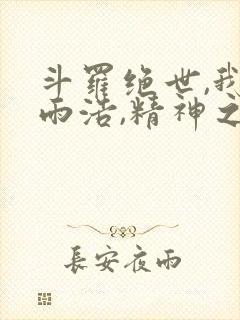 斗羅绝世,我
雨浩,精神之
長安夜雨